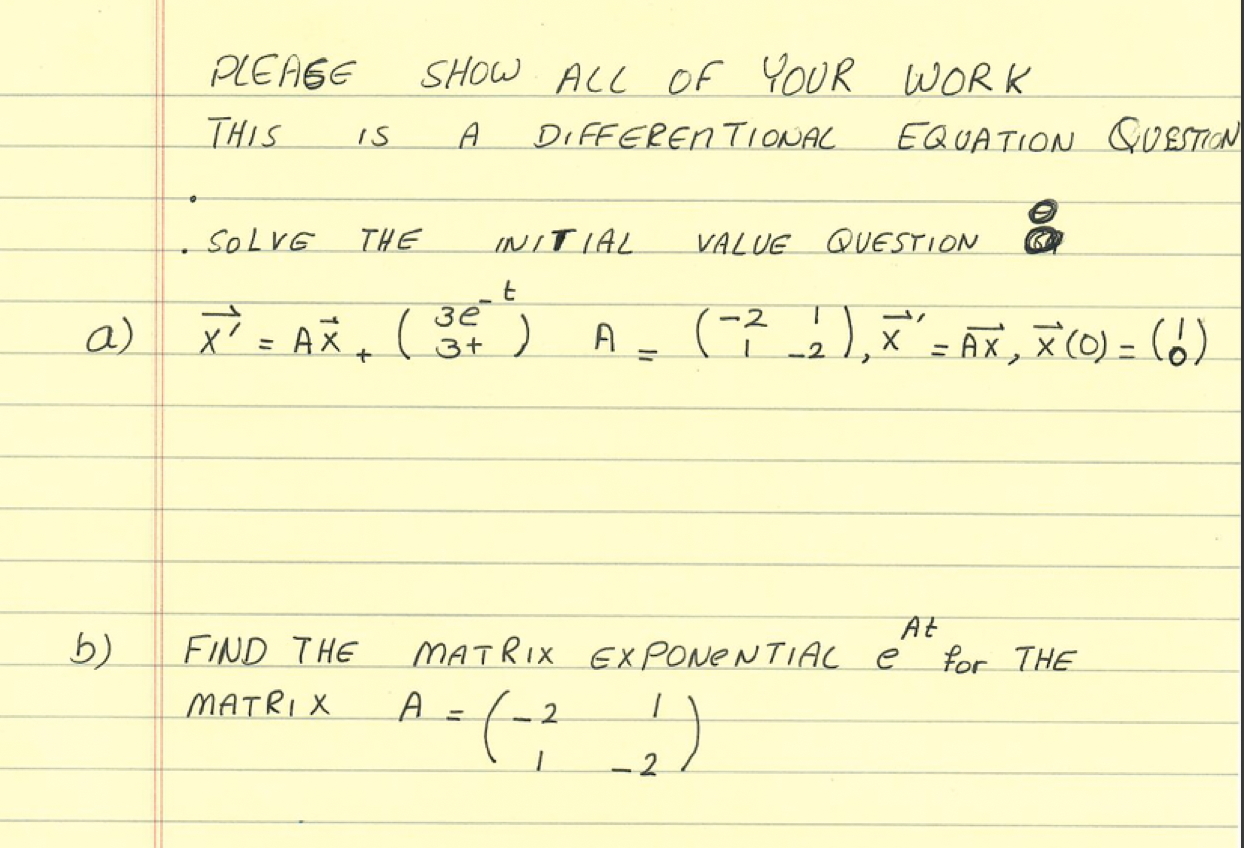 PLEASE SHOW ALL OF YOUR WORK
THIS IS A DIFFERENTIONAL EQUATION QUESTION
. SOLVE THE INITIAL VALUE QUESTION :
a) x⃗' = Ax⃗ + (3e^-t / 3t) A = (-2 1 / 1 -2), x⃗' = Ax⃗, x⃗(0) = (1 / 0)
b) FIND THE MATRIX EXPONENTIAL e^At for THE
MATRIX A = (-2 1 / 1 -2)